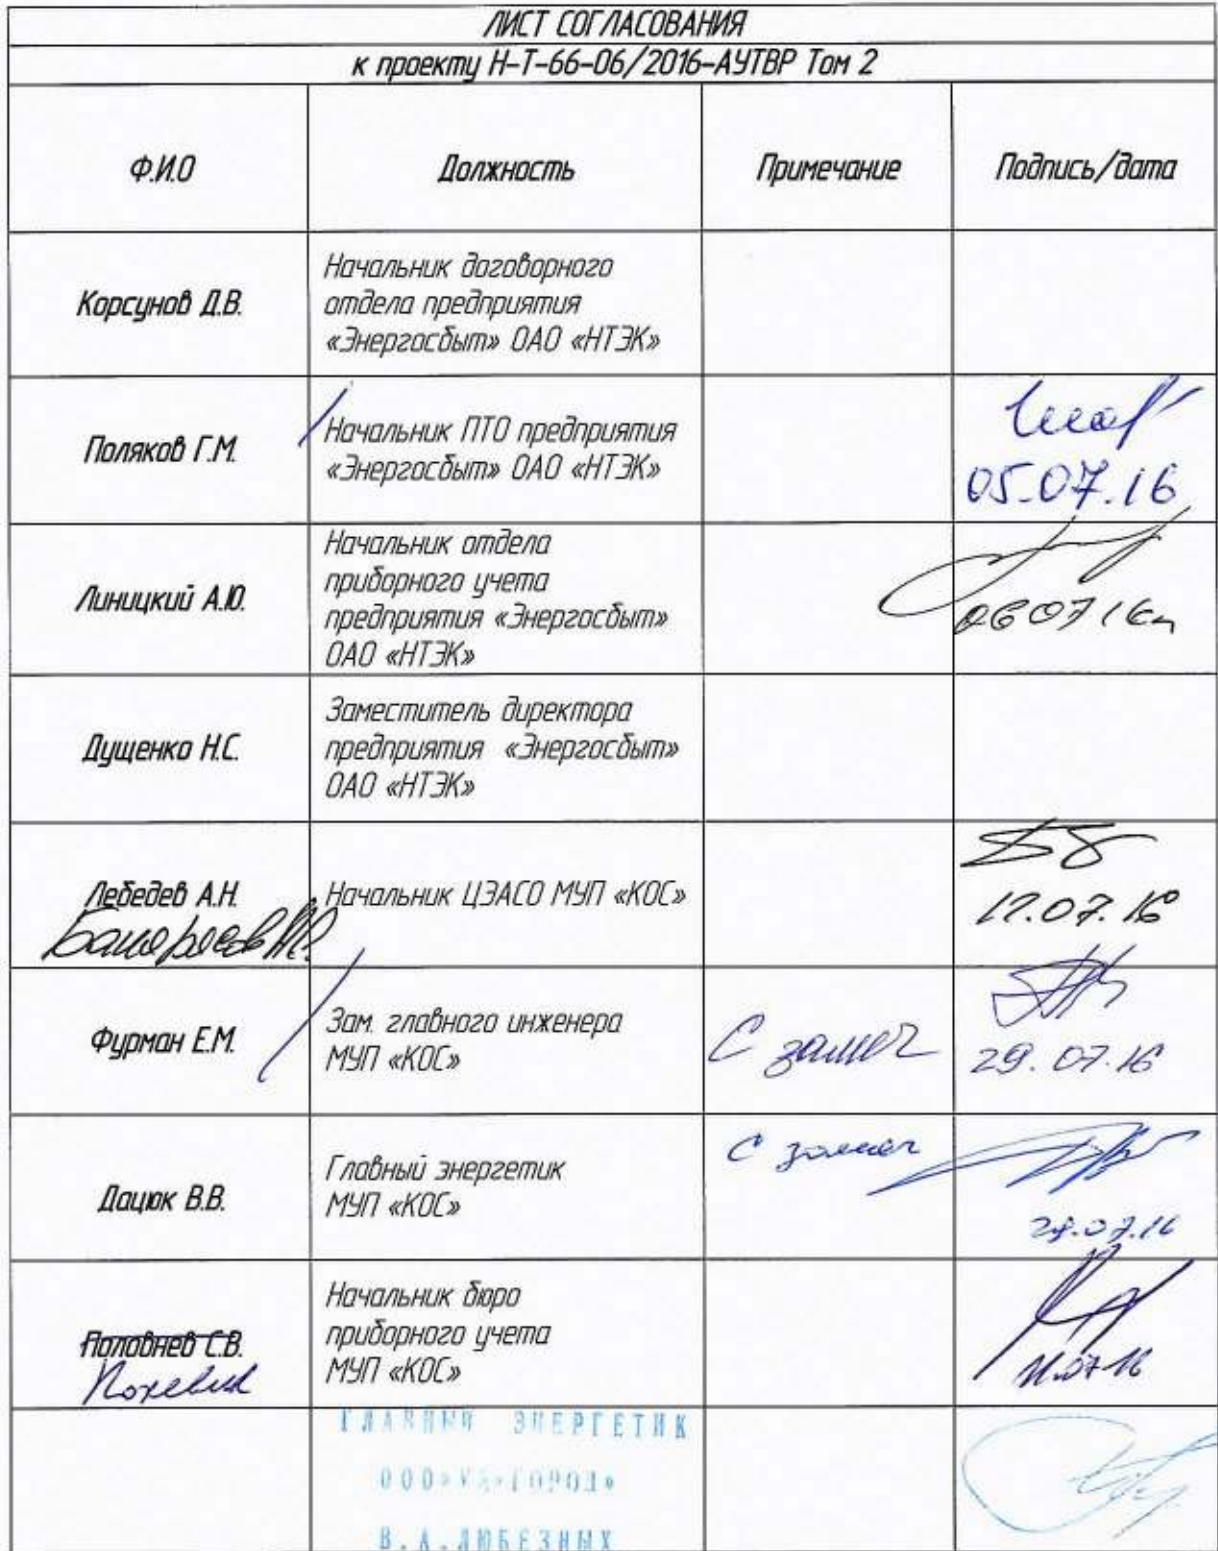 ЛИСТ СОГЛАСОВАНИЯ
к проекту Н-Т-66-06/2016-АУТВР Том 2
Ф.И.О
Должность
Примечание
Подпись/дата
Корсунов Д.В.
Начальник договорного
отдела предприятия
«Энергосбыт» ОАО «НТЭК»
Поляков Г.М.
Начальник ПТО предприятия
«Энергосбыт» ОАО «НТЭК»
05.07.16
Линицкий А.Ю.
Начальник отдела
приборного учета
предприятия «Энергосбыт»
ОАО «НТЭК»
06 07 16г
Дущенко Н.С.
Заместитель директора
предприятия «Энергосбыт»
ОАО «НТЭК»
Лебедев А.Н.
Начальник ЦЭАСО МУП «КОС»
12.07.16
Фурман Е.М.
Зам. главного инженера
МУП «КОС»
С замеч
29.07.16
Дацюк В.В.
Главный энергетик
МУП «КОС»
С замеч
Половнев С.В.
Начальник бюро
приборного учета
МУП «КОС»
11.07.16
ГЛАВНЫЙ ЭНЕРГЕТИК
ООО «УК «ГОРОД»
В.А.ЛЮБЕЗНЫХ